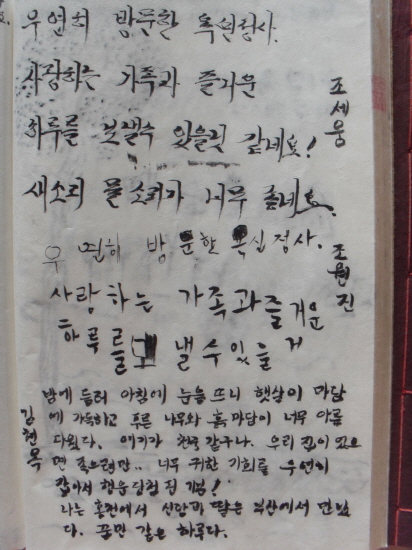 우연히 방문한 옥신정사.
사랑하는 가족과 즐거운
하루를 보낼수 있을것 같네요!
새소리 물소리가 너무 좋네요.
조세웅
우연히 방문한 옥신정사.
사랑하는 가족과 즐거운
하루를 보낼수있을거
조원진
밤에 들러 아침에 눈을 뜨니 햇살이 마당
에 가득하고 푸른 나무와 흙마당이 너무 아름
다웠다. 여기가 천국 같구나. 우리 집이 있으
면 좋으련만.. 너무 귀한 기회를 우연히
잡아서 행운당첨 된 기분!
나는 홍천에서 신랑과 딸은 부산에서 만났
다. 꿈만 같은 하루다.
김현옥